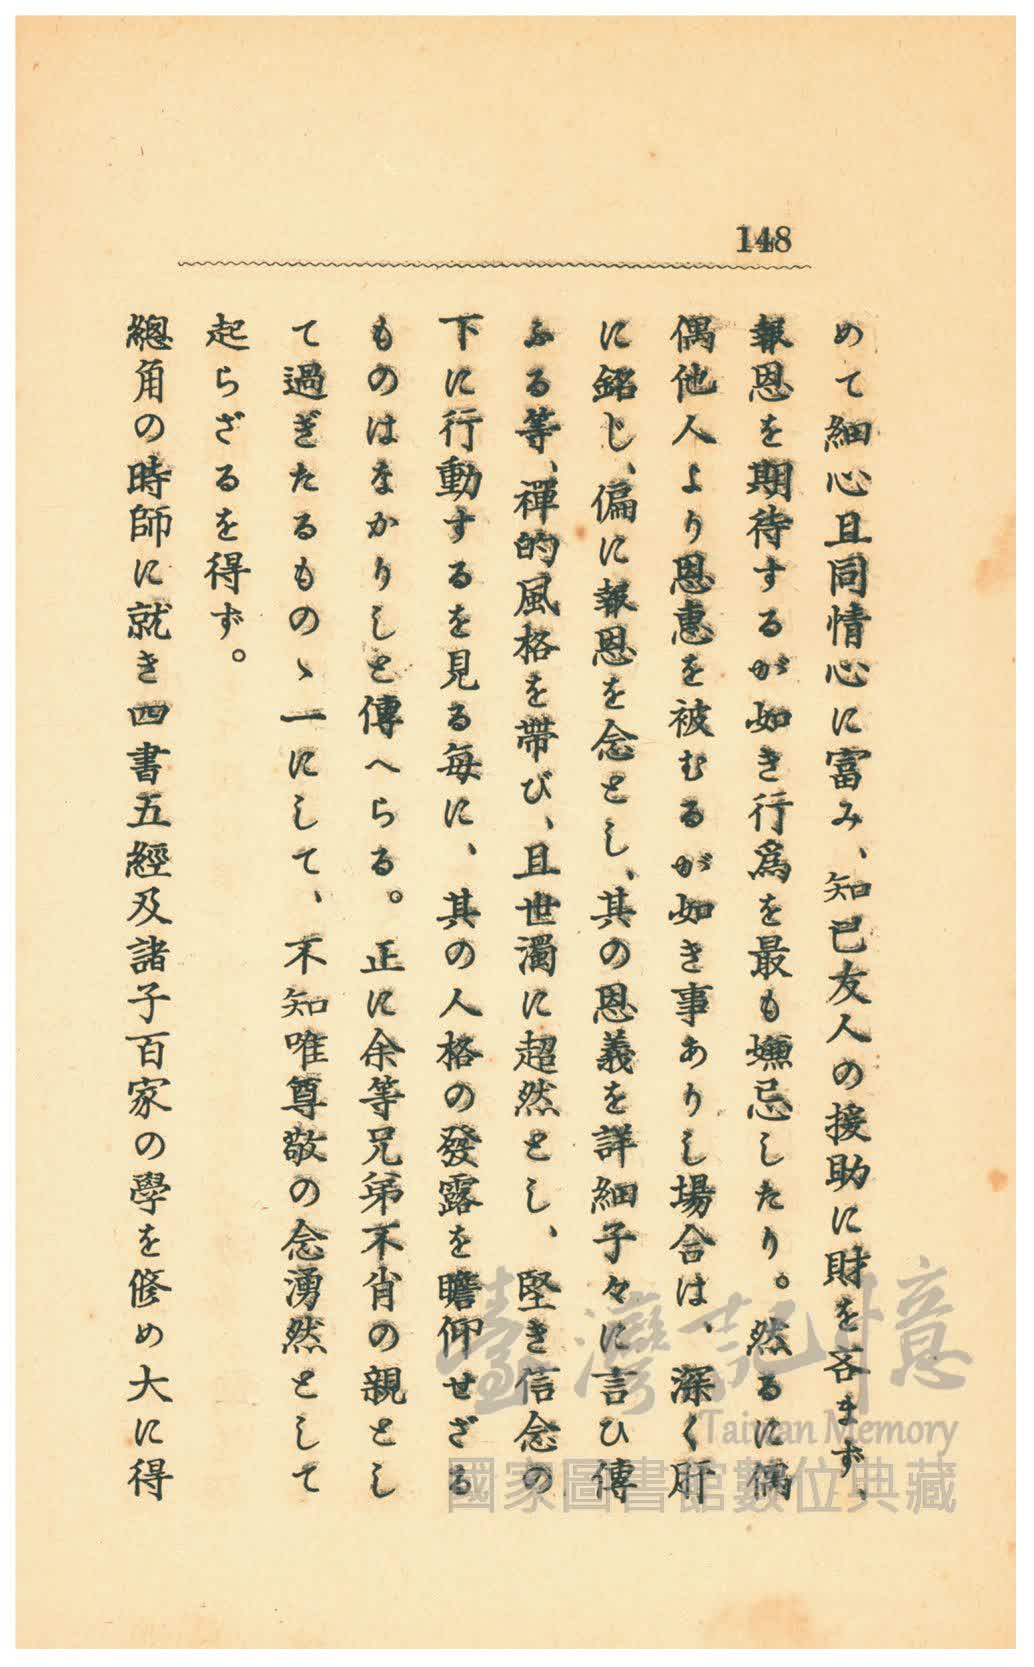 148
めて細心且同情心に富み、知已友人の援助に財を吝まず、
報恩を期待するが如き行爲を最も嫌忌したり。然るに偶
偶他人より恩惠を被むるが如き事ありし場合は、深く肝
に銘じ、偏に報恩を念とし、其の恩義を詳細子々に言ひ傳
ふる等、禪的風格を帶び、且世濁に超然とし、堅き信念の
下に行動するを見る毎に、其の人格の發露を瞻仰せざる
ものはなかりしと傳へらる。正に余等兄弟不肖の親とし
て過ぎたるものゝ一にして、不知唯尊敬の念湧然として
起らざるを得ず。
總角の時師に就き四書五經及諸子百家の學を修め大に得
臺灣記憶
Taiwan Memory
國家圖書館數位典藏